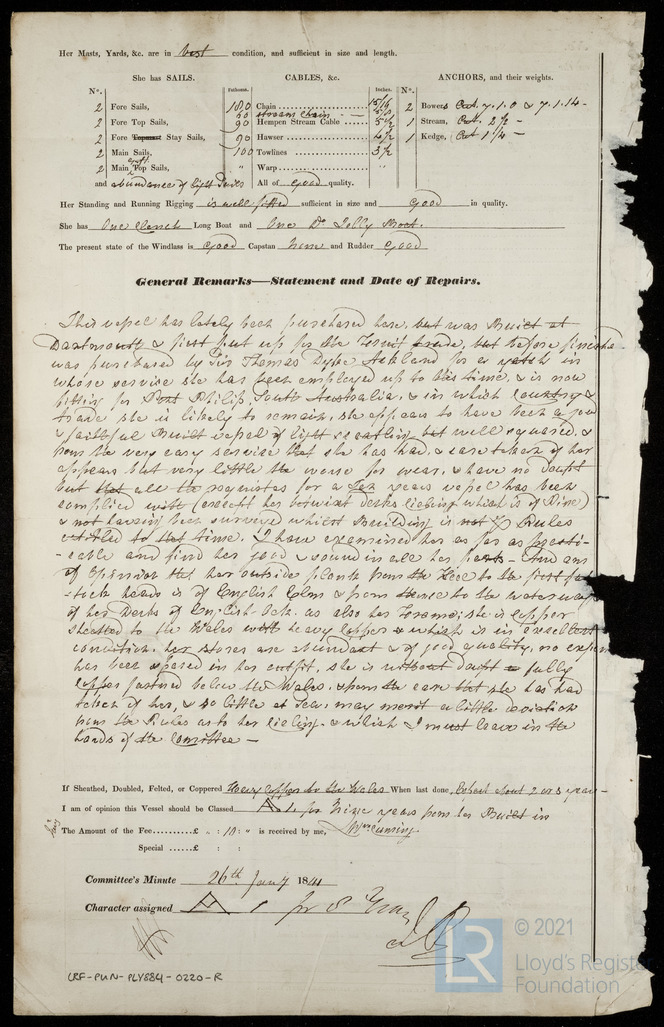 Her Masts, Yards, &c. are in best condition, and sufficient in size and length.
She has SAILS.
CABLES, &c.
ANCHORS, and their weights.
N°. Fathoms. Inches. N°.
2 Fore Sails, Chain 180 15/16 2 Bowers Cwt. 7.1.0 & 7.1.14
2 Fore Top Sails, stream chain Hempen Stream Cable 90 5½ 1 Stream, Cwt. 2½
2 Fore Topmast Stay Sails, Hawser 90 4½ 1 Kedge, Cwt 1¼
2 Main Sails, Towlines 100 3½
2 Main Gaft. Top Sails, Warp "
and abundance of light Sails All of Good quality.
Her Standing and Running Rigging is well fitted sufficient in size and Good in quality.
She has One Clench Long Boat and One Do Jolly Boat.
The present state of the Windlass is Good Capstan None and Rudder Good
General Remarks—Statement and Date of Repairs.
This vessel has lately been purchased here, but was Built at
Dartmouth & first put up for the Fruit trade, but before finished she
was purchased by Sir Thomas Dyke Ackland for a yatch in
whose service she has been employed up to this time, & is now
fitting for Port Philip, South Australia, & in which country &
trade she is likely to remain, she appears to have been a good
& faithful Built vessel of light scantling but well squared, &
from the very easy service that she has had, & care taken of her
appears but very little the worse for wear, & have no doubt
but that all the requisites for a Ten years vessel has been
complied with (except her betwixt decks cieling which is of Pine)
& not having been surveyed whilst Building is not Rules
to that time. I have examined her as far as practi-
-cable and find her good & sound in all her parts - And am
of Opinion that her outside plank from the Keel to the first fut-
-tock heads is of English Elm & from thence to the waterways
of her Decks of English Oak. as also her Frame; she is copper
sheathed to the Wales with heavy Copper & which is in excellent
condition. her stores are abundant & of good quality, no expense
has been spared in her outfit, she is without doubt a fully
copper fastened below the Wales. & from the care that she has had
taken of her, & so little at Sea, may merit a little deviation
from the Rules as to her cieling. & which I must leave in the
hands of the Committee —
If Sheathed, Doubled, Felted, or Coppered Heavy Copper to the Wales When last done, Expect about 2 or 3 years
I am of opinion this Vessel should be Classed A 1. for Nine years from her Built in
The Amount of the Fee.........£ " : 10 : " is received by me, Wm Cuming
Special ......£ : :
Committee's Minute 26th Jany 1841
Character assigned A 1 for 8 Years
LRF-PUN-PLY884-0220-R
LR
© 2021
Lloyd's Register
Foundation